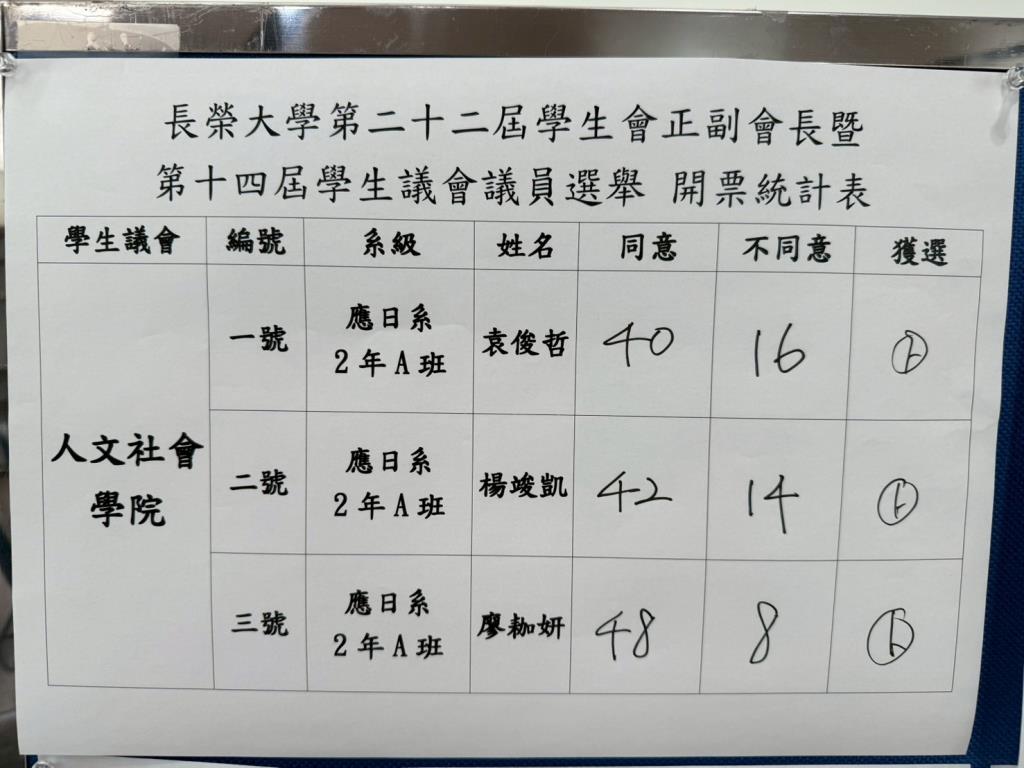 長榮大學第二十二屆學生會正副會長暨
第十四屆學生議會議員選舉 開票統計表
學生議會 編號 系級 姓名 同意 不同意 獲選
人文社會
學院
一號 應日系
2年A班 袁俊哲 40 16
二號 應日系
2年A班 楊竣凱 42 14
三號 應日系
2年A班 廖耞妍 48 8